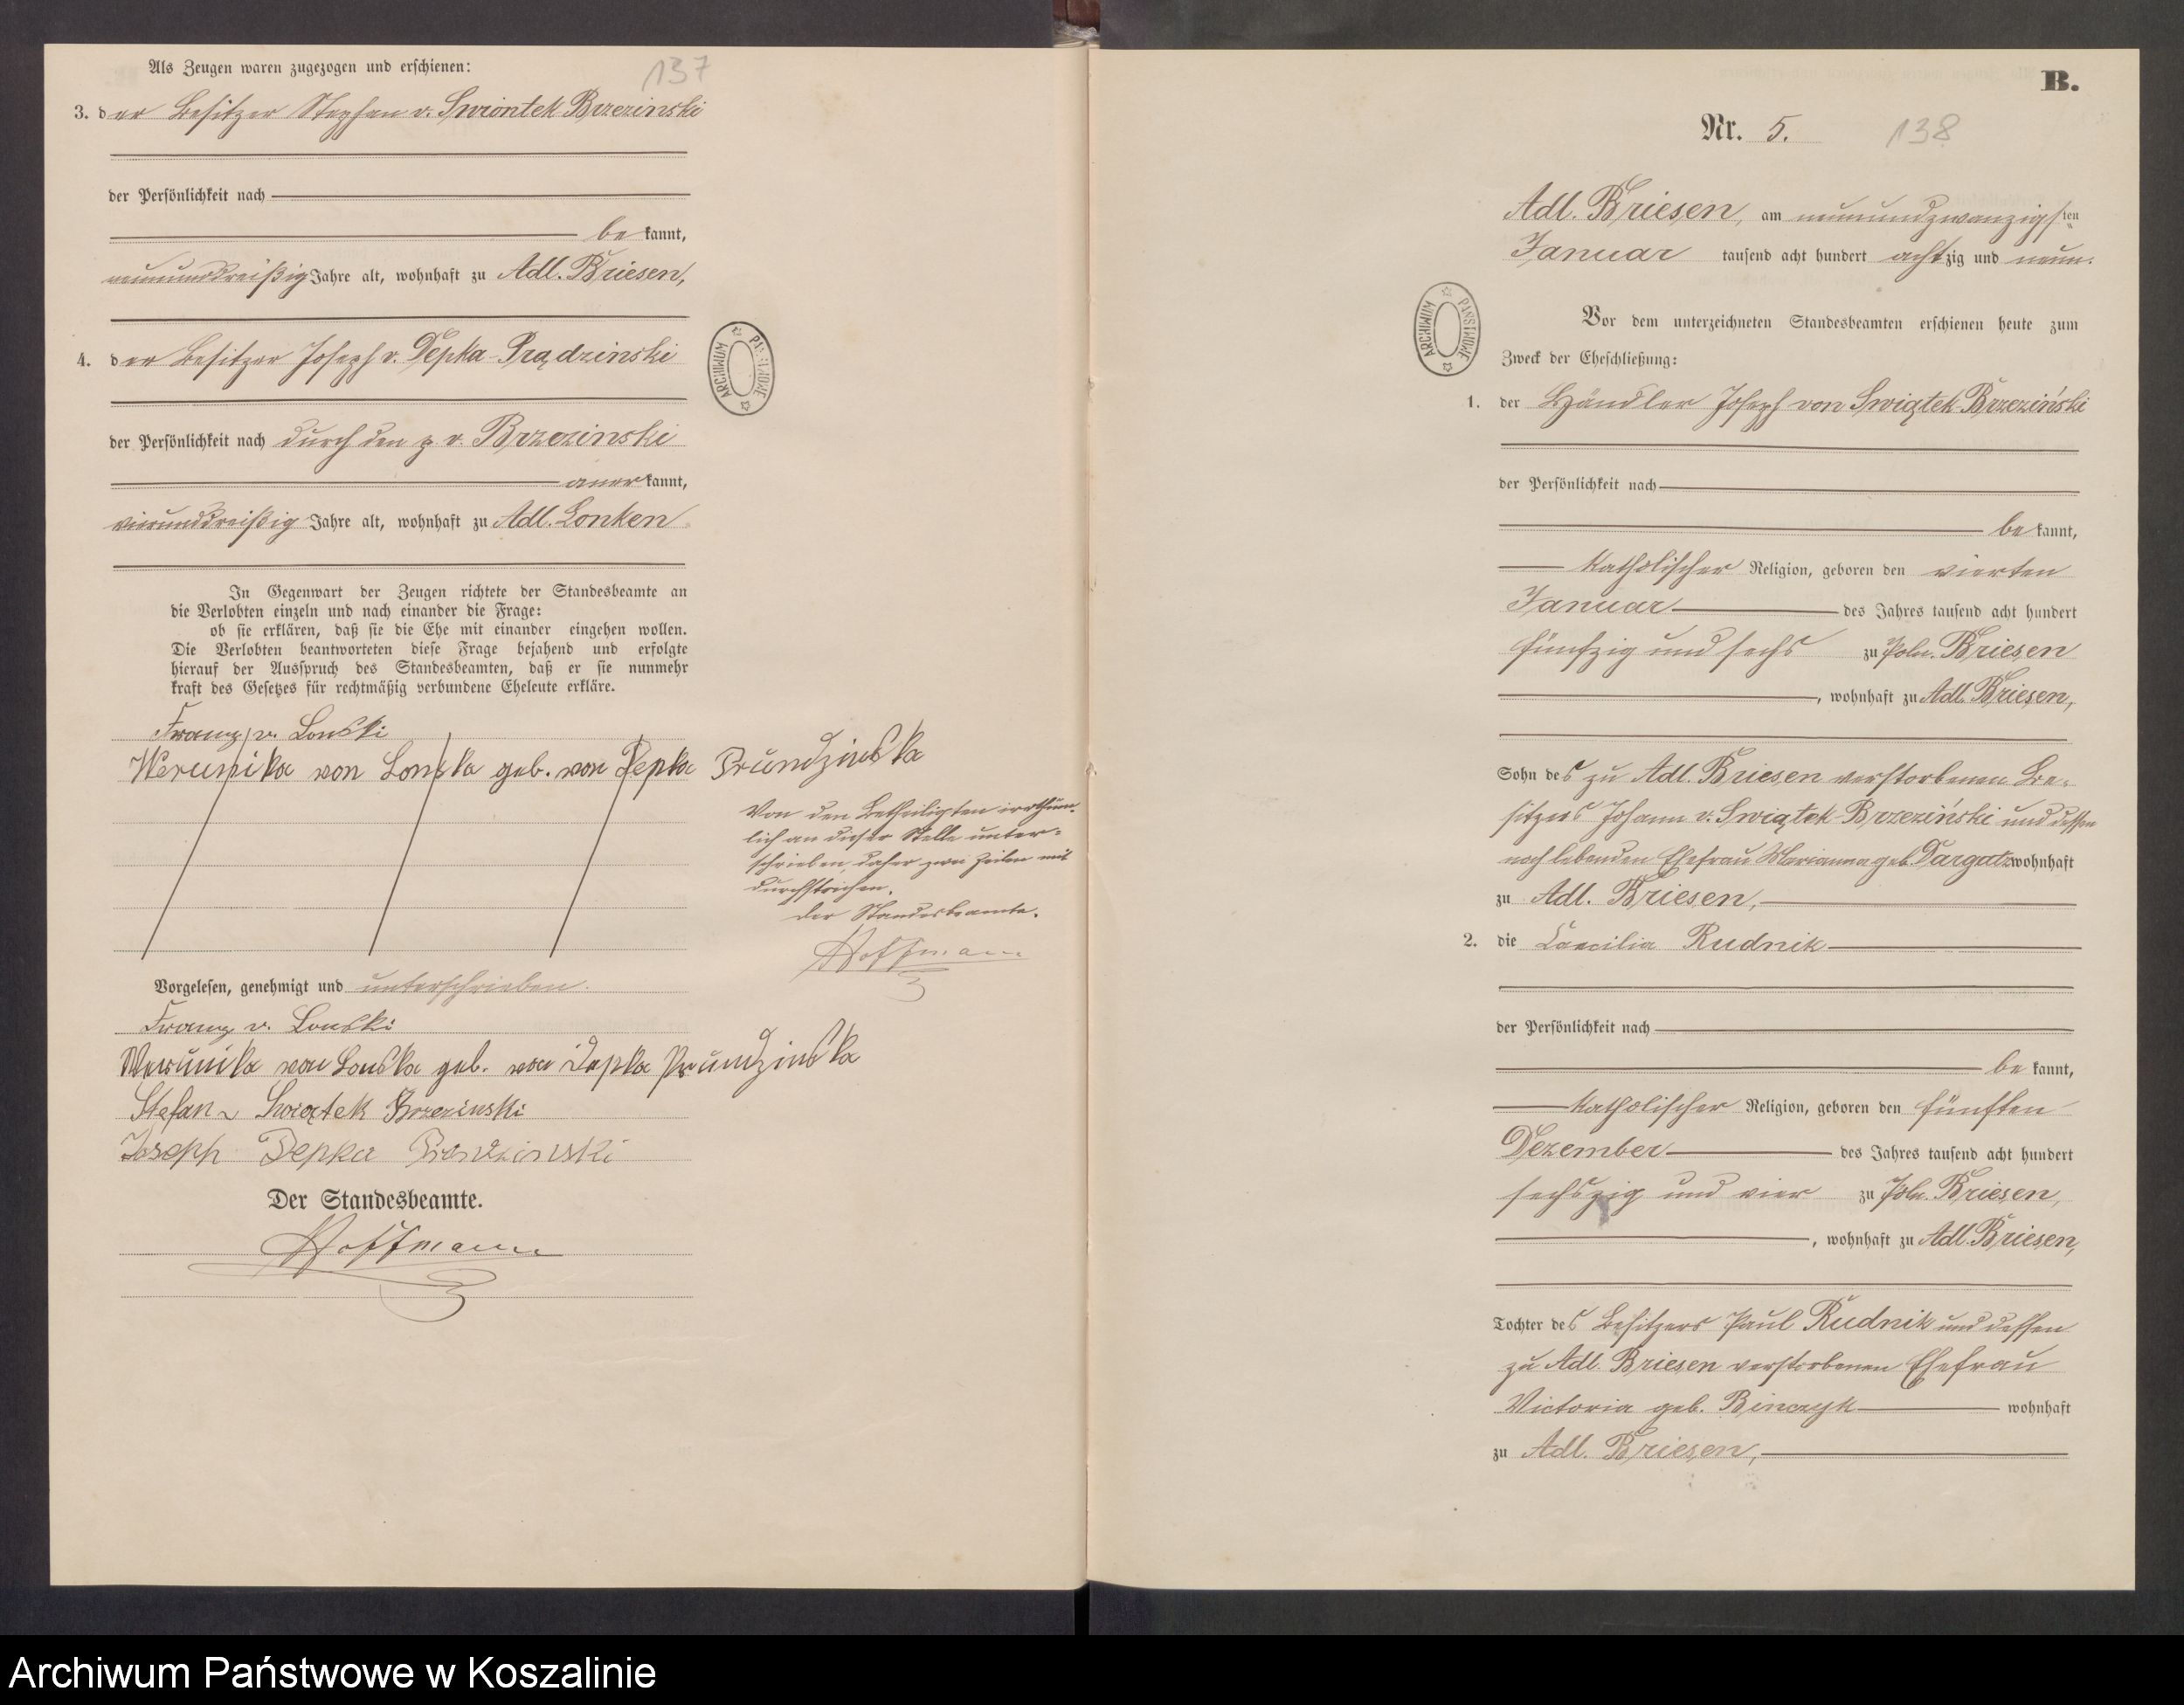 Als Zeugen waren zugezogen und erschienen:
137
3. der Besitzer Stephan v. Swiontek Brzezinski
der Persönlichkeit nach
bekannt,
neununddreißig Jahre alt, wohnhaft zu Adl. Briesen,
4. der Besitzer Joseph v. Depka-Prądzinski
der Persönlichkeit nach durch den p. v. Brzezinski
anerkannt,
vierunddreißig Jahre alt, wohnhaft zu Adl. Lonken
In Gegenwart der Zeugen richtete der Standesbeamte an
die Verlobten einzeln und nach einander die Frage:
ob sie erklären, daß sie die Ehe mit einander eingehen wollen.
Die Verlobten beantworteten diese Frage bejahend und erfolgte
hierauf der Ausspruch des Standesbeamten, daß er sie nunmehr
kraft des Gesetzes für rechtmäßig verbundene Eheleute erkläre.
Franz v. Lonski
Werunika von Lonska geb. von Depka Prundzinska
Von den Betheiligten irrthüm-
lich an dieser Stelle unter-
schrieben, daher zwei Zeilen mit
durchstrichen.
Der Standesbeamte.
Hoffmann
Vorgelesen, genehmigt und unterschrieben.
Franz v. Lonski
Werunika von Lonska geb. von Depka Prundzinska
Stefan v Swiątek Brzezinski
Joseph Depka Prondzinski
Der Standesbeamte.
Hoffmann
ARCHIWUM PAŃSTWOWE
B.
Nr. 5.
138
Adl. Briesen, am neunundzwanzigsten
Januar tausend acht hundert achtzig und neun.
ARCHIWUM PAŃSTWOWE
Vor dem unterzeichneten Standesbeamten erschienen heute zum
Zweck der Eheschließung:
1. der Händler Joseph von Swiątek-Brzeziński
der Persönlichkeit nach
bekannt,
katholischer Religion, geboren den vierten
Januar des Jahres tausend acht hundert
fünfzig und sechs zu Poln. Briesen
, wohnhaft zu Adl. Briesen,
Sohn des zu Adl. Briesen verstorbenen Be-
sitzers Johann v. Swiątek-Brzeziński und dessen
noch lebenden Ehefrau Marianna geb. Dargatz wohnhaft
zu Adl. Briesen,
2. die Caecilia Rudnik
der Persönlichkeit nach
bekannt,
katholischer Religion, geboren den fünften
Dezember des Jahres tausend acht hundert
sechszig und vier zu Poln. Briesen,
, wohnhaft zu Adl. Briesen,
Tochter des Besitzers Paul Rudnik und dessen
zu Adl. Briesen verstorbenen Ehefrau
Victoria geb. Binczyk wohnhaft
zu Adl. Briesen,
Archiwum Państwowe w Koszalinie